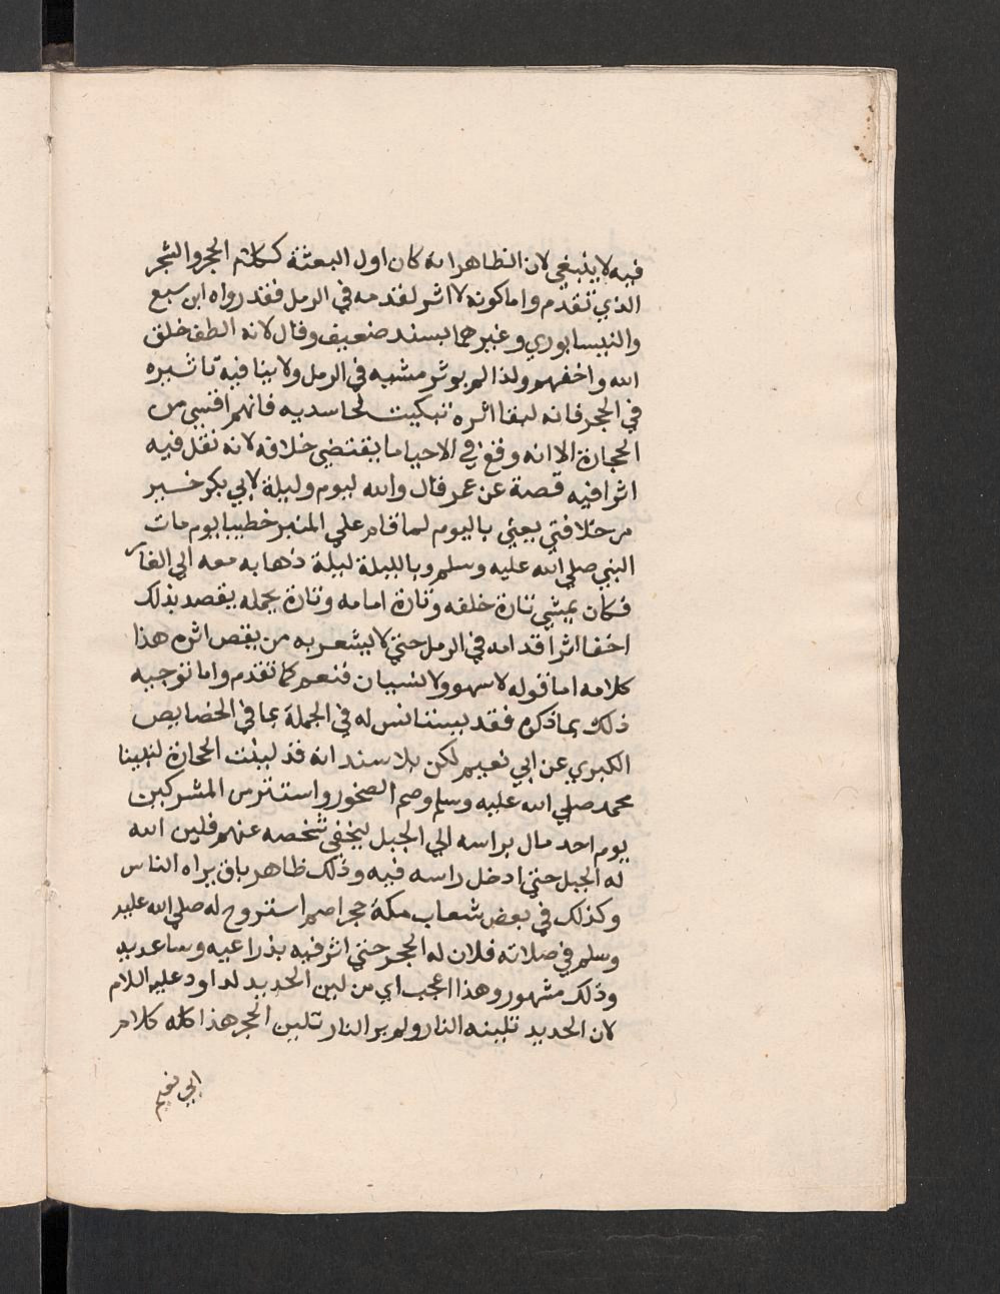 فيه لا ينبغي لان الظاهر انه كان اول البعثة كسلام الحجر والشجر
الذي تقدم واما كونه لا اثر لقدمه في الرمل فقد رواه ابن سبع
والنيسابوري وغيرهما بسند ضعيف وقال لانه الطف خلق
الله واخفهم ولذا لم يوثر مشيه في الرمل ولا ينافيه تاثيره
في الحجر فانه لبقا اثره تبكيت لحاسديه فانهم اقسي من
الحجارة الا انه وقع في الاحيا ما يقتضي خلافه لانه نقل فيه
اثرا فيه قصة عن عمر قال والله ليوم وليلة لابي بكر خير
من خلافتي يعني باليوم لما قام علي المنبر خطيبا يوم مات
النبي صلي الله عليه وسلم وبالليلة ليلة ذهابه معه الي الغار
فكان يمشي تارة خلفه وتارة امامه وتارة يحمله يقصد بذلك
اخفا اثر اقدامه في الرمل حتي لا يشعر به من يقص اثره هذا
كلامه اما قوله لا سهو ولا نسيان فنعم كما تقدم واما توجيه
ذلك بما ذكره فقد يستانس له في الجملة بما في الخصايص
الكبري عن ابي نعيم لكن بلا سند انه قد لينت الحجارة لنبينا
محمد صلي الله عليه وسلم وصم الصخور واستترس المشركين
يوم احد مال براسه الي الجبل ليخفي شخصه عنهم فلين الله
له الجبل حتي ادخل راسه فيه وذلك ظاهر باق يراه الناس
وكذلك في بعض شعاب مكة حجر اصم استروح له صلي الله عليه
وسلم في صلاته فلان له الحجر حتي اثر فيه بذراعيه وساعديه
وذلك مشهور وهذا اعجب اي من لين الحديد لداود عليه اللام
لان الحديد تلينه النار ولم ير النار تلين الحجر هذا كله كلام
ابي نعيم